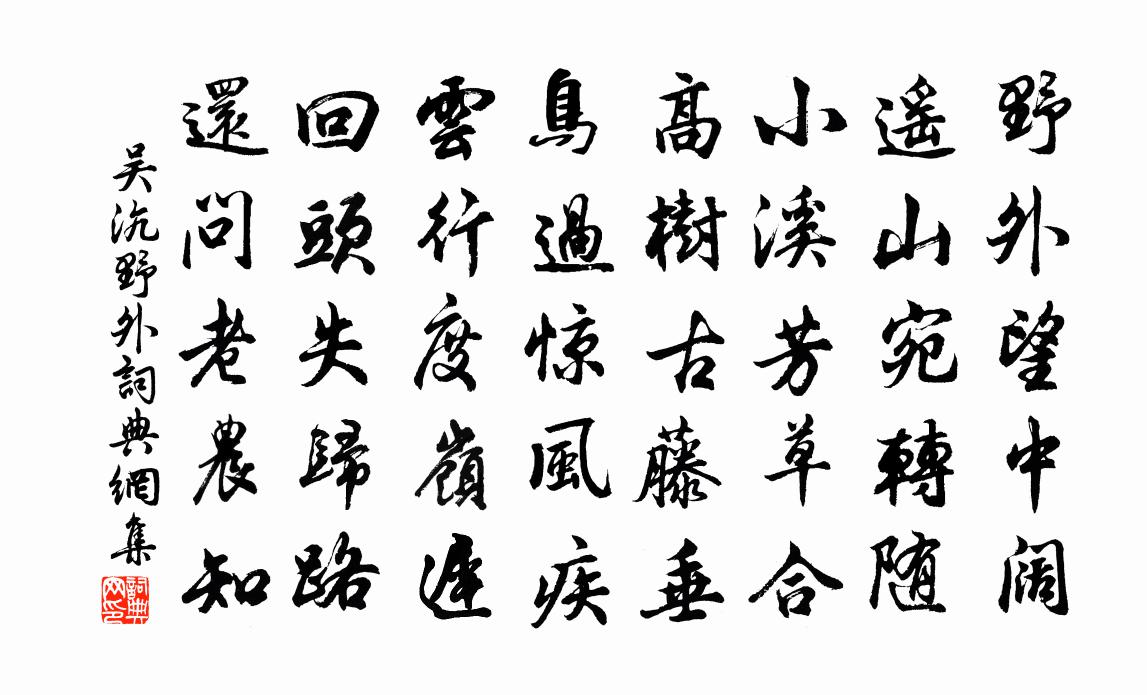 野外望中阔
遥山宛轉随
小溪芳草合
高樹古藤垂
鳥過惊風疾
雲行度嶺遲
回頭失歸路
還問老農知
吴沉野外詞典網集
詞典网印